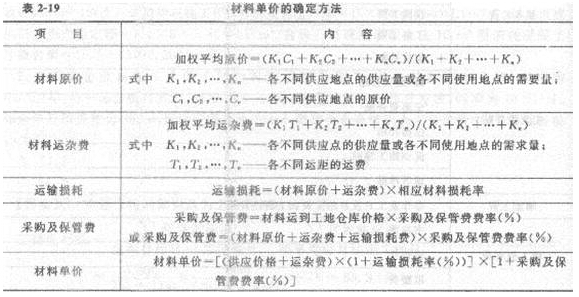 表 2-19 材料单价的确定方法
项 目 内 容
材料原价
加权平均原价=(K₁C₁+K₂C₂+…+KₙCₙ)/(K₁+K₂+…+Kₙ)
式中 K₁,K₂,…,Kₙ——各不同供应地点的供应量或各不同使用地点的需要量;
C₁,C₂,…,Cₙ——各不同供应地点的原价
材料运杂费
加权平均运杂费=(K₁T₁+K₂T₂+…+KₙTₙ)/(K₁+K₂+…+Kₙ)
式中 K₁,K₂,…,Kₙ——各不同供应点的供应量或各不同使用地点的需求量;
T₁,T₂,…,Tₙ——各不同运距的运费
运输损耗 运输损耗=(材料原价+运杂费)×相应材料损耗率
采购及保管费
采购及保管费=材料运到工地仓库价格×采购及保管费费率(%)
或采购及保管费=(材料原价+运杂费+运输损耗费)×采购及保管费费率(%)
材料单价
材料单价=[(供应价格+运杂费)×(1+运输损耗率(%))]×[1+采购及保
管费费率(%)]